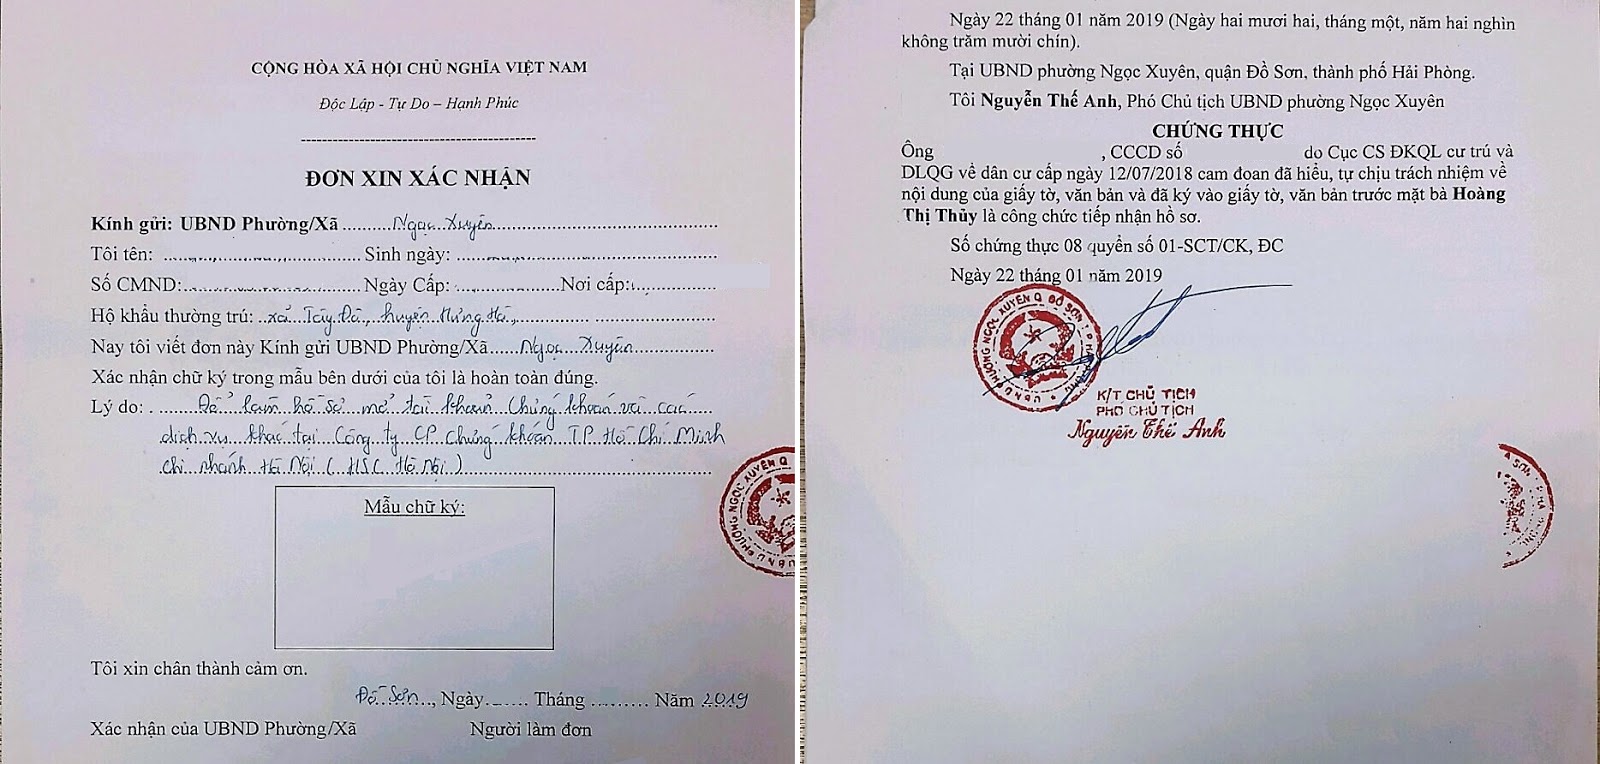 CỘNG HÒA XÃ HỘI CHỦ NGHĨA VIỆT NAM
Độc Lập - Tự Do – Hạnh Phúc
ĐƠN XIN XÁC NHẬN
Kính gửi: UBND Phường/Xã Ngọc Xuyên
Tôi tên: Sinh ngày:
Số CMND: Ngày Cấp: Nơi cấp:
Hộ khẩu thường trú: xã Tây Đô, huyện Hưng Hà,
Nay tôi viết đơn này Kính gửi UBND Phường/Xã Ngọc Xuyên
Xác nhận chữ ký trong mẫu bên dưới của tôi là hoàn toàn đúng.
Lý do: Để làm hồ sơ mở tài khoản chứng khoán và các
dịch vụ khác tại Công ty CP chứng khoán TP Hồ Chí Minh
chi nhánh Hà Nội (HSC Hà Nội)
Mẫu chữ ký:
Tôi xin chân thành cảm ơn.
Đồ Sơn, Ngày Tháng Năm 2019
Xác nhận của UBND Phường/Xã Người làm đơn
Ngày 22 tháng 01 năm 2019 (Ngày hai mươi hai, tháng một, năm hai nghìn
không trăm mười chín).
Tại UBND phường Ngọc Xuyên, quận Đồ Sơn, thành phố Hải Phòng.
Tôi Nguyễn Thế Anh, Phó Chủ tịch UBND phường Ngọc Xuyên
CHỨNG THỰC
Ông , CCCD số do Cục CS ĐKQL cư trú và
DLQG về dân cư cấp ngày 12/07/2018 cam đoan đã hiểu, tự chịu trách nhiệm về
nội dung của giấy tờ, văn bản và đã ký vào giấy tờ, văn bản trước mặt bà Hoàng
Thị Thủy là công chức tiếp nhận hồ sơ.
Số chứng thực 08 quyển số 01-SCT/CK, ĐC
Ngày 22 tháng 01 năm 2019
K/T CHỦ TỊCH
PHÓ CHỦ TỊCH
Nguyễn Thế Anh